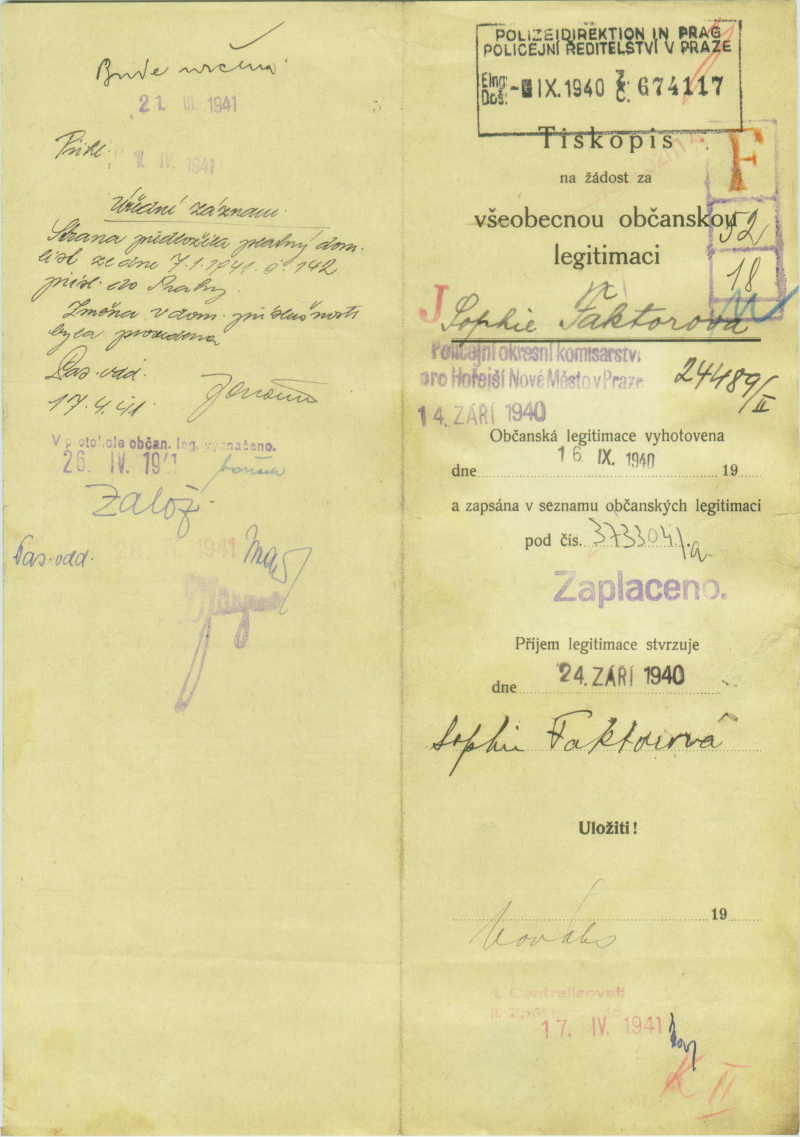 Bude
21. III. 1941
IV. 1941
Úřední záznam.
Strana předložila platný dom.
list ze dne 7.1.1941 č. 142
přísl. do Prahy.
Změna v dom. příslušnosti
byla provedena
Pas. odd.
17.4.41
V protokole občan. leg. vyznačeno.
26. IV. 1941
Založ.
Pas. odd.
1941
POLIZEIDIREKTION IN PRAG
POLICEJNÍ ŘEDITELSTVÍ V PRAZE
Eing.: Doš.: IX. 1940 Z. Č. 674117
Tiskopis
na žádost za
F
všeobecnou občanskou
52
legitimaci
18
J Sophie Faktorová
Policejní okresní komisařství
pro Hořejší Nové Město v Praze
24489/II
14. ZÁŘÍ 1940
Občanská legitimace vyhotovena
dne 16. IX. 1940 19
a zapsána v seznamu občanských legitimací
pod čís. 373304/
Zaplaceno.
Příjem legitimace stvrzuje
dne 24. ZÁŘÍ 1940
Sophie Faktorová
Uložiti!
19
17. IV. 1941
K II